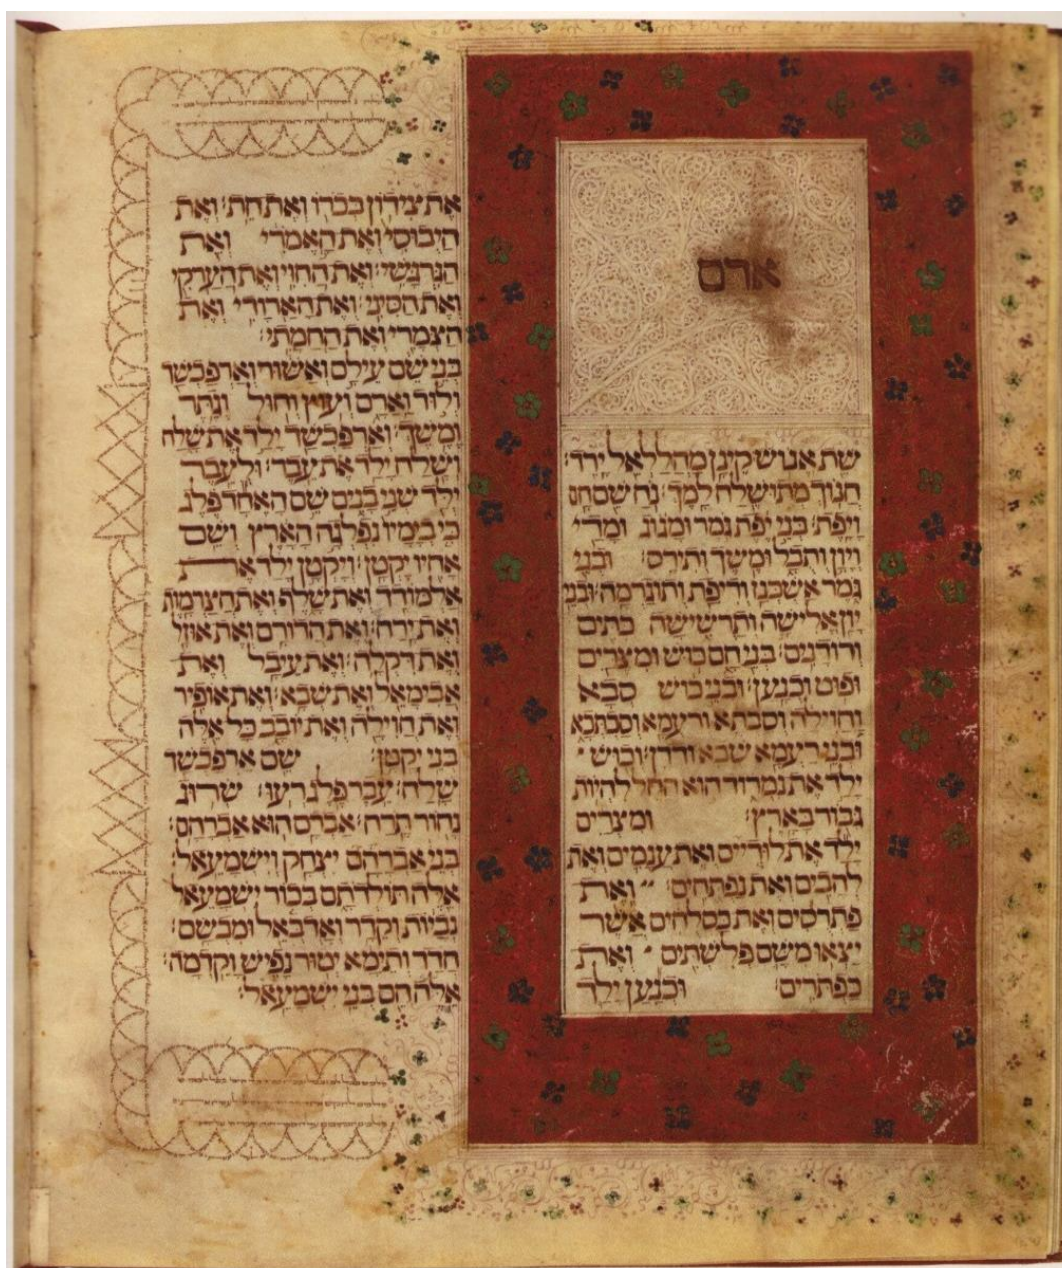 אדם
שת אנוש קינן מהללאל ירד׃
חנוך מתושלח למך׃ נח שם חם
ויפת׃ בני יפת גמר ומגוג ומדי
ויון ותבל ומשך ותירס׃ ובני
גמר אשכנז ודיפת ותוגרמה׃ ובני
יון אלישה ותרשישה כתים
ורודנים׃ בני חם כוש ומצרים
ופוט וכנען׃ ובני כוש סבא
וחוילה וסבתא ורעמא וסבתכא
ובני רעמא שבא ודדן׃ וכוש
ילד את נמרוד הוא החל להיות
גבור בארץ׃ ומצרים
ילד את לודיים ואת ענמים ואת
להבים ואת נפתחים׃ ואת
פתרסים ואת כסלחים אשר
יצאו משם פלשתים ואת
כפתרים׃ וכנען ילד
את צידון בכרו ואת חת׃ ואת
היבוסי ואת האמרי ואת
הגרגשי׃ ואת החוי ואת הערקי
ואת הסיני׃ ואת הארודי ואת
הצמרי ואת החמתי׃
בני שם עילם ואשור וארפכשד
ולוד וארם ועוץ וחול וגתר
ומשך׃ וארפכשד ילד את שלח
ושלח ילד את עבר׃ ולעבר
ילד שני בנים שם האחד פלג
כי בימיו נפלגה הארץ ושם
אחיו יקטן׃ ויקטן ילד את
אלמודד ואת שלף ואת חצרמות
ואת ירח׃ ואת הדורם ואת אוזל
ואת דקלה׃ ואת עיבל ואת
אבימאל ואת שבא׃ ואת אופיר
ואת חוילה ואת יובב כל אלה
בני יקטן׃ שם ארפכשד
שלח׃ עבר פלג רעו׃ שרוג
נחור תרח׃ אברם הוא אברהם׃
בני אברהם יצחק וישמעאל׃
אלה תולדתם בכור ישמעאל
נביות וקדר ואדבאל ומבשם׃
חדד ותימא יטור נפיש וקדמה׃
אלה הם בני ישמעאל׃